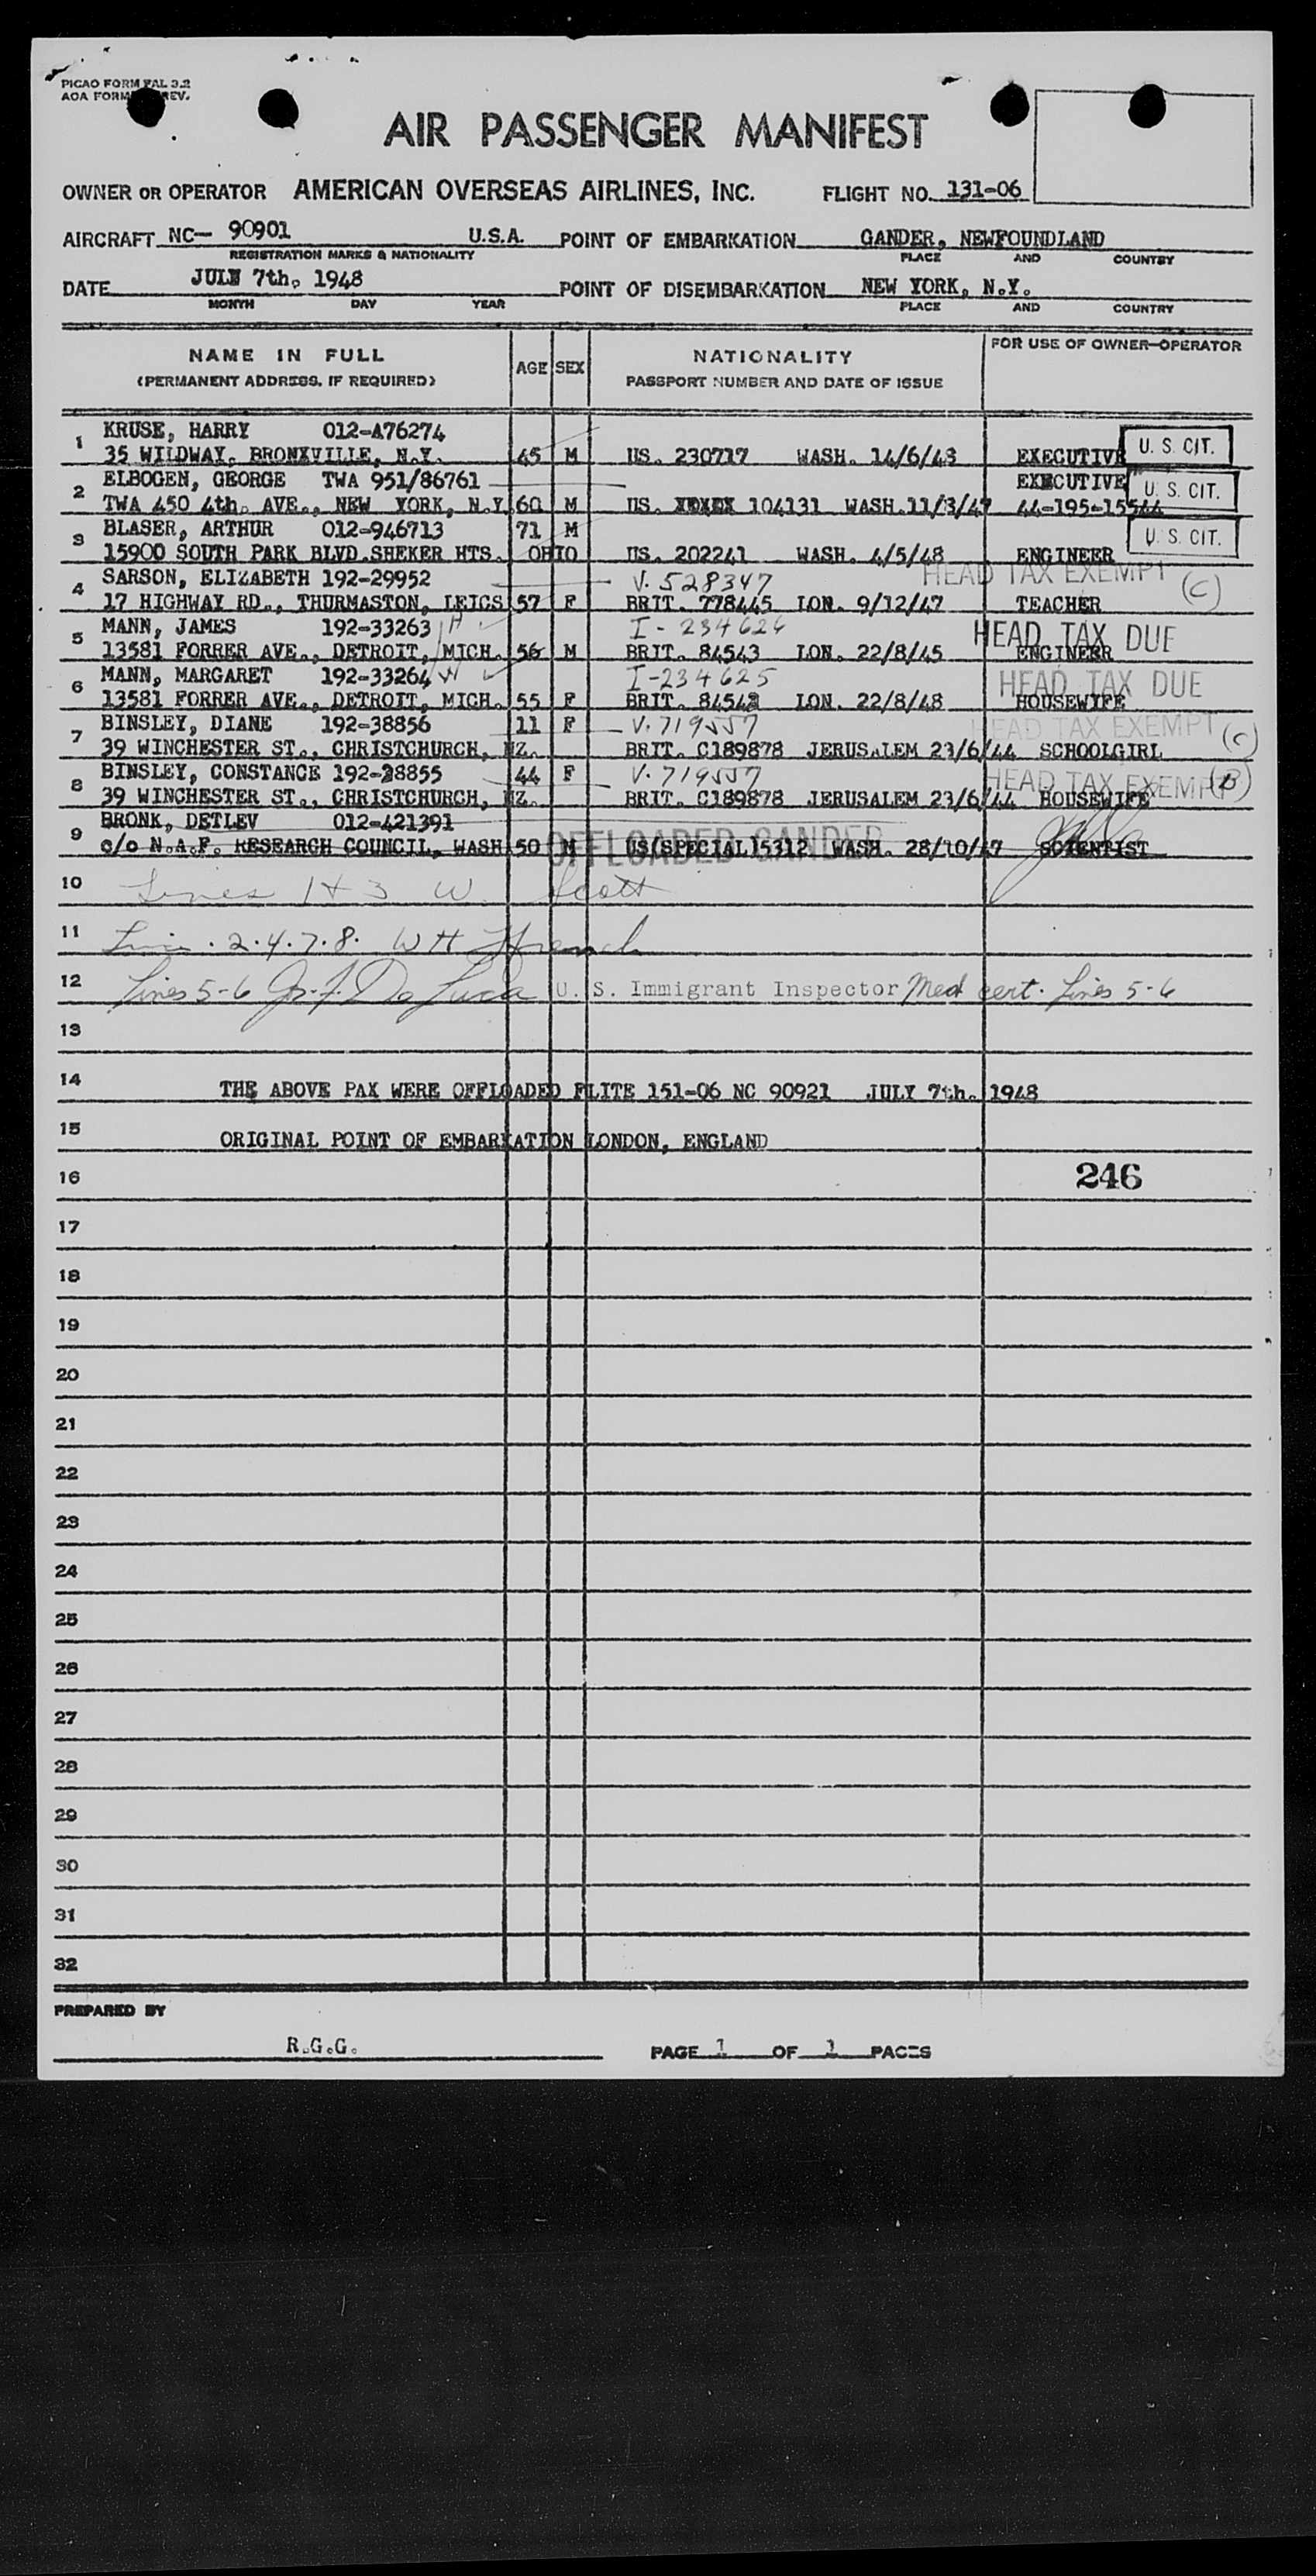 PICAO FORM FAL 3.2
AOA FORM REV.
AIR PASSENGER MANIFEST
OWNER OR OPERATOR AMERICAN OVERSEAS AIRLINES, INC. FLIGHT NO. 131-06
AIRCRAFT NC- 90901 U.S.A. POINT OF EMBARKATION GANDER, NEWFOUNDLAND
REGISTRATION MARKS & NATIONALITY PLACE AND COUNTRY
DATE JULY 7th, 1948 POINT OF DISEMBARKATION NEW YORK, N.Y.
MONTH DAY YEAR PLACE AND COUNTRY
NAME IN FULL AGE SEX NATIONALITY FOR USE OF OWNER-OPERATOR
(PERMANENT ADDRESS, IF REQUIRED) PASSPORT NUMBER AND DATE OF ISSUE
1 KRUSE, HARRY 012-A76274
35 WILDWAY, BRONXVILLE, N.Y. 45 M US. 230717 WASH. 14/6/48 EXECUTIVE U. S. CIT.
2 ELBOGEN, GEORGE TWA 951/86761 EXECUTIVE U. S. CIT.
TWA 450 4th. AVE., NEW YORK, N.Y. 60 M US. 104131 WASH. 11/3/47 44-195-15544
3 BLASER, ARTHUR 012-946713 71 M U. S. CIT.
15900 SOUTH PARK BLVD. SHEKER HTS. OHIO US. 202241 WASH. 4/5/48 ENGINEER
4 SARSON, ELIZABETH 192-29952 V. 528347 HEAD TAX EXEMPT (C)
17 HIGHWAY RD., THURMASTON, LEICS 57 F BRIT. 778445 LON. 9/12/47 TEACHER
5 MANN, JAMES 192-33263 H I - 234626 HEAD TAX DUE
13581 FORRER AVE., DETROIT, MICH. 56 M BRIT. 84543 LON. 22/8/45 ENGINEER
6 MANN, MARGARET 192-33264 I-234625 HEAD TAX DUE
13581 FORRER AVE., DETROIT, MICH. 55 F BRIT. 84542 LON. 22/8/48 HOUSEWIFE
7 BINSLEY, DIANE 192-38856 11 F V. 719557 HEAD TAX EXEMPT (C)
39 WINCHESTER ST., CHRISTCHURCH, NZ. BRIT. C189878 JERUSALEM 23/6/44 SCHOOLGIRL
8 BINSLEY, CONSTANCE 192-38855 44 F V. 719557 HEAD TAX EXEMPT (B)
39 WINCHESTER ST., CHRISTCHURCH, NZ. BRIT. C189878 JERUSALEM 23/6/44 HOUSEWIFE
9 BRONK, DETLEV 012-421391
c/o N.A.F. RESEARCH COUNCIL, WASH 50 M US(SPECIAL)5312 WASH. 28/10/47 SCIENTIST
OFFLOADED GANDER
10 Lines 1 & 3 W. Scott
11 Lines . 2. 4. 7. 8. W H French
12 Lines 5-6 De Luca U. S. Immigrant Inspector Med cert. Lines 5-6
13
14 THE ABOVE PAX WERE OFFLOADED FLITE 151-06 NC 90921 JULY 7th. 1948
15 ORIGINAL POINT OF EMBARKATION LONDON, ENGLAND
16 246
17
18
19
20
21
22
23
24
25
26
27
28
29
30
31
32
PREPARED BY
R.G.G. PAGE 1 OF 1 PAGES